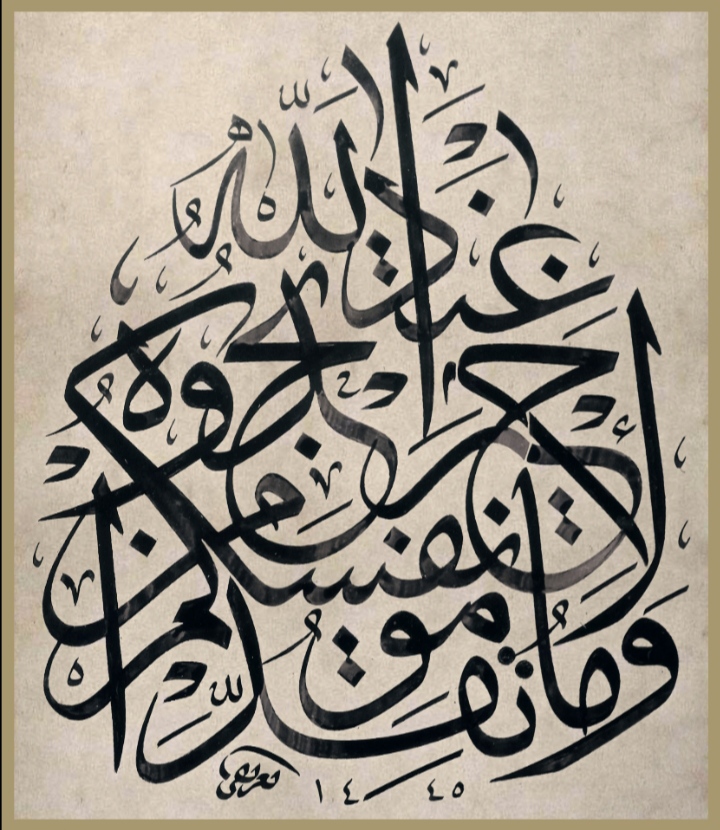 وَمَا تُقَدِّمُوا لِأَنْفُسِكُمْ مِنْ خَيْرٍ تَجِدُوهُ عِنْدَ اللَّهِ
١٤٤٥